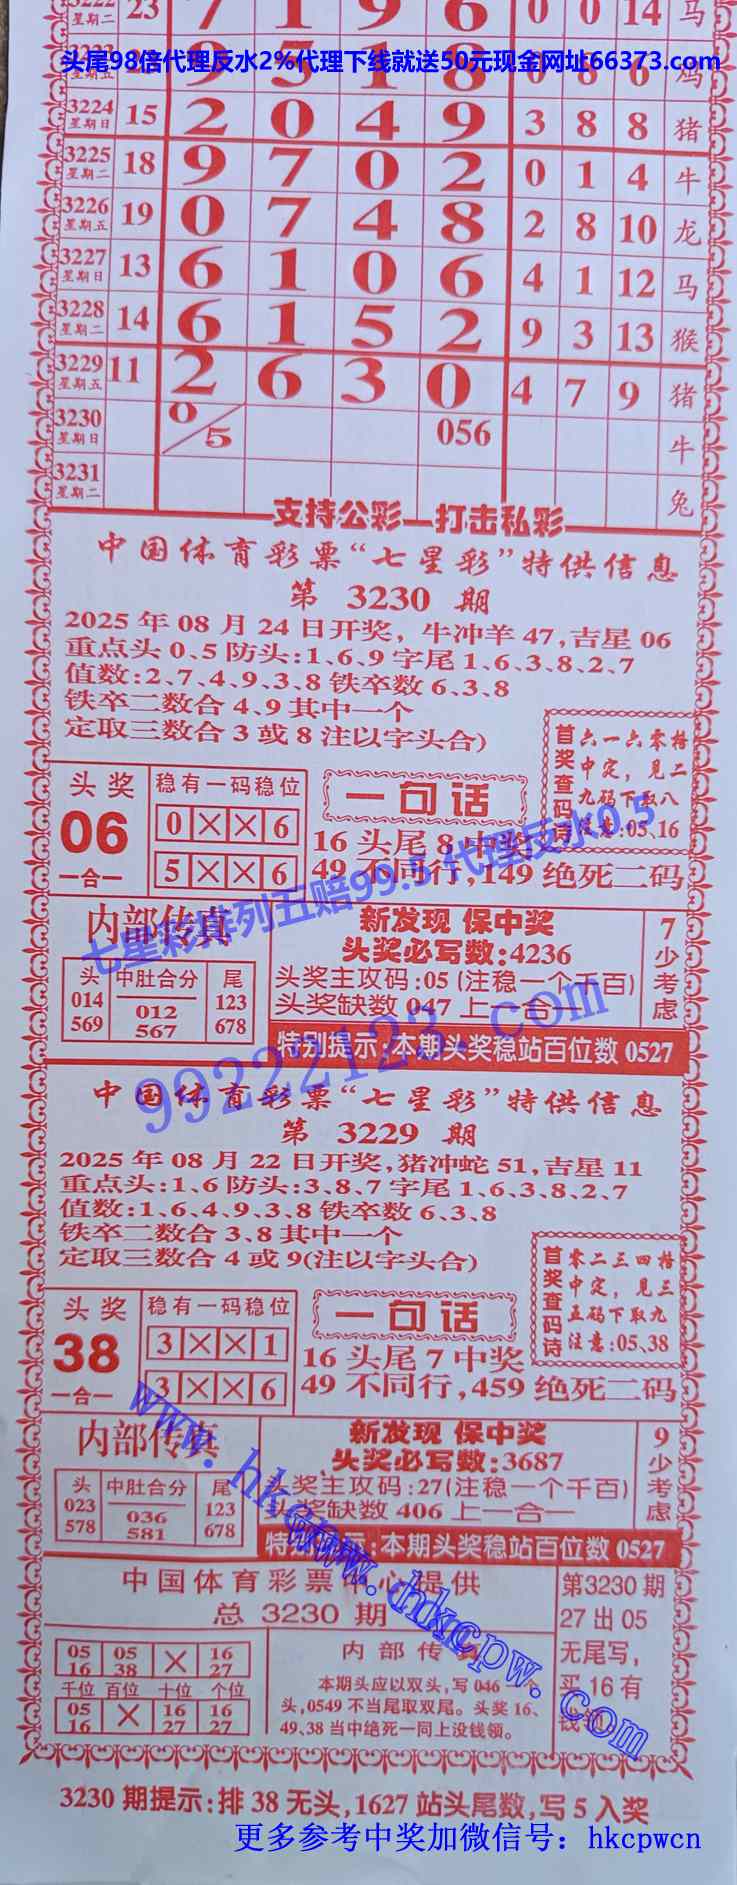 3222 星期二 23 7 1 9 6 0 0 14 马
头尾98倍代理反水2%代理下线就送50元现金网址66373.com
9 5 1 8 0 6 6 鸡
3224 星期日 15 2 0 4 9 3 8 8 猪
3225 星期二 18 9 7 0 2 0 1 4 牛
3226 星期五 19 0 7 4 8 2 8 10 龙
3227 星期日 13 6 1 0 6 4 1 12 马
3228 星期二 14 6 1 5 2 9 3 13 猴
3229 星期五 11 2 6 3 0 4 7 9 猪
3230 星期日 0/5 056 牛
3231 星期二 兔
支持公彩—打击私彩
中国体育彩票“七星彩”特供信息
第 3230 期
2025年08月24日开奖，牛冲羊47,吉星06
重点头0、5防头:1、6、9字尾1、6、3、8、2、7
值数:2、7、4、9、3、8铁卒数6、3、8
铁卒二数合4、9其中一个
定取三数合3或8注以字头合)
首奖查码诗
六一六零格
中定，见二
九码下取八
注意:05、16
头奖
06
一合一
稳有一码稳位
0 × × 6
5 × × 6
一句话
16头尾8中奖
49不同行,149绝死二码
七星彩排列五赔99.5代理反水0.5
内部传真
头 014 569
中肚合分 012 567
尾 123 678
新发现 保中奖
头奖必写数:4236
头奖主攻码:05(注稳一个千百)
头奖缺数047上一合一
7少考虑
特别提示:本期头奖稳站百位数0527
99222123.com
中国体育彩票“七星彩”特供信息
第 3229 期
2025年08月22日开奖,猪冲蛇51,吉星11
重点头:1、6防头:3、8、7字尾1、6、3、8、2、7
值数:1、6、4、9、3、8铁卒数6、3、8
铁卒二数合3、8其中一个
定取三数合4或9(注以字头合)
首奖查码诗
零二三四格
中定，见三
五码下取九
注意:05、38
头奖
38
一合一
稳有一码稳位
3 × × 1
3 × × 6
一句话
16头尾7中奖
49不同行,459绝死二码
内部传真
头 023 578
中肚合分 036 581
尾 123 678
新发现 保中奖
头奖必写数:3687
头奖主攻码:27(注稳一个千百)
头奖缺数406上一合一
9少考虑
特别提示:本期头奖稳站百位数0527
www.hkcpw.com
www.hkcpw.com
中国体育彩票中心提供
总 3230 期
05 16 05 38 × 16 27
千位 百位 十位 个位
05 16 × 16 27 16 27
内部传真
本期头应以双头,写046
头,0549不当尾取双尾。头奖16、
49、38当中绝死一同上没钱领。
第3230期
27出05
无尾写,
买16有
钱领
3230期提示:排38无头,1627站头尾数,写5入奖
更多参考中奖加微信号：hkcpwcn